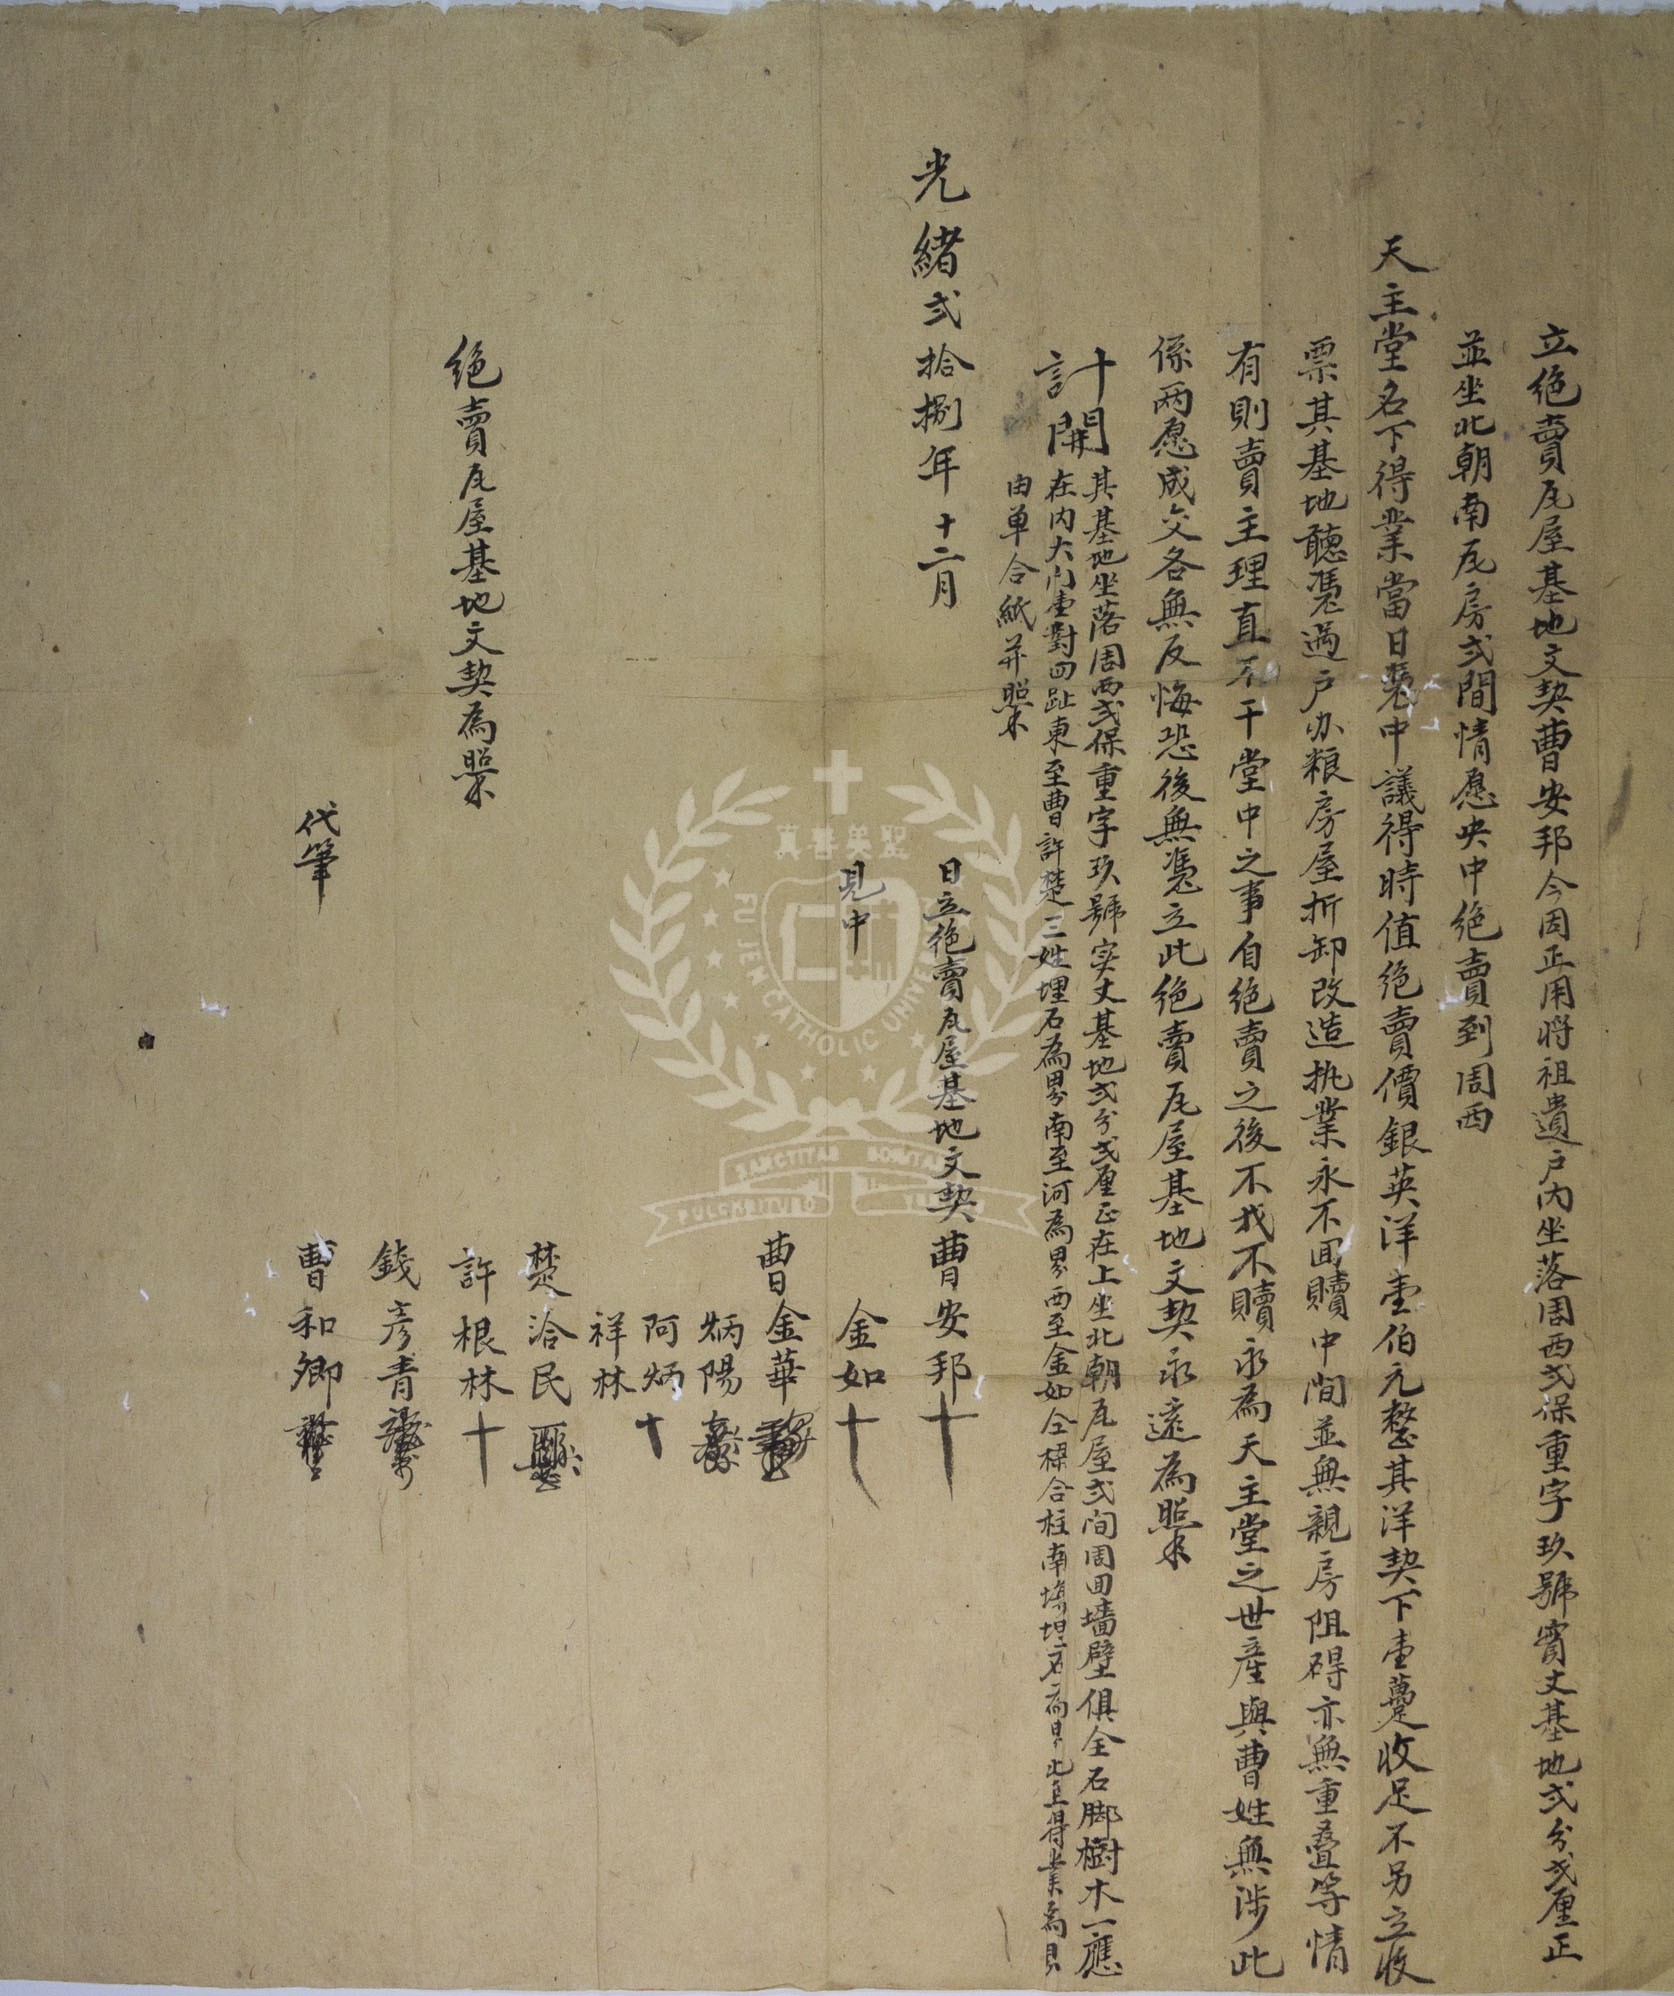 立絕賣瓦屋基地文契曹安邦今因正用將祖遺戶內坐落周西弍保重字玖號實丈基地弍分弍厘正
並坐北朝南瓦房弍間情愿央中絕賣到周西
天主堂名下得業當日憑中議得時值絕賣價銀英洋壹伯元整其洋契下壹躉收足不另立收
票其基地聽憑過戶办粮房屋折卸改造执業永不回贖中間並無親房阻碍亦無重叠等情
有則賣主理直不干堂中之事自絕賣之後不找不贖永為天主堂之世産與曹姓無涉此
係两愿成交各無反悔恐後無憑立此絕賣瓦屋基地文契永遠為照
計開
其基地坐落周西弍保重字玖號实丈基地弍分弍厘正在上坐北朝瓦屋弍间周囬墙壁俱全石脚樹木一應
在内大门壹對四趾東至曹許楚三姓埋石為界南至河為界西至金如仝樑合柱南埋石為界北至得業為
由单合紙并照
光緒弍拾捌年十二月
日立絕賣瓦屋基地文契曹安邦十
金如十
見中
曹金華
炳陽
阿炳十
祥林
楚洽民
許根林十
錢彦青
絕賣瓦屋基地文契為照
代筆
曹和卿
聖美善真
FU JEN CATHOLIC UNIVE
SANCTITAS BONITAS
PULCHRITUDO